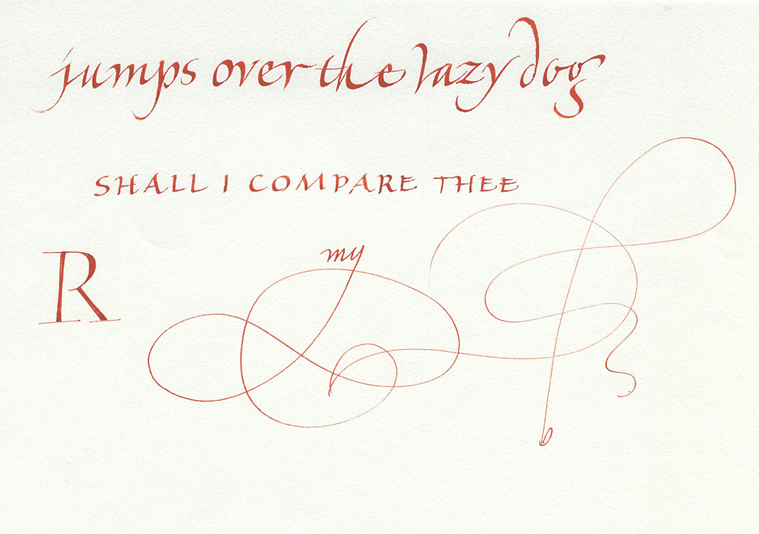 jumps over the lazy dog
SHALL I COMPARE THEE
R
my